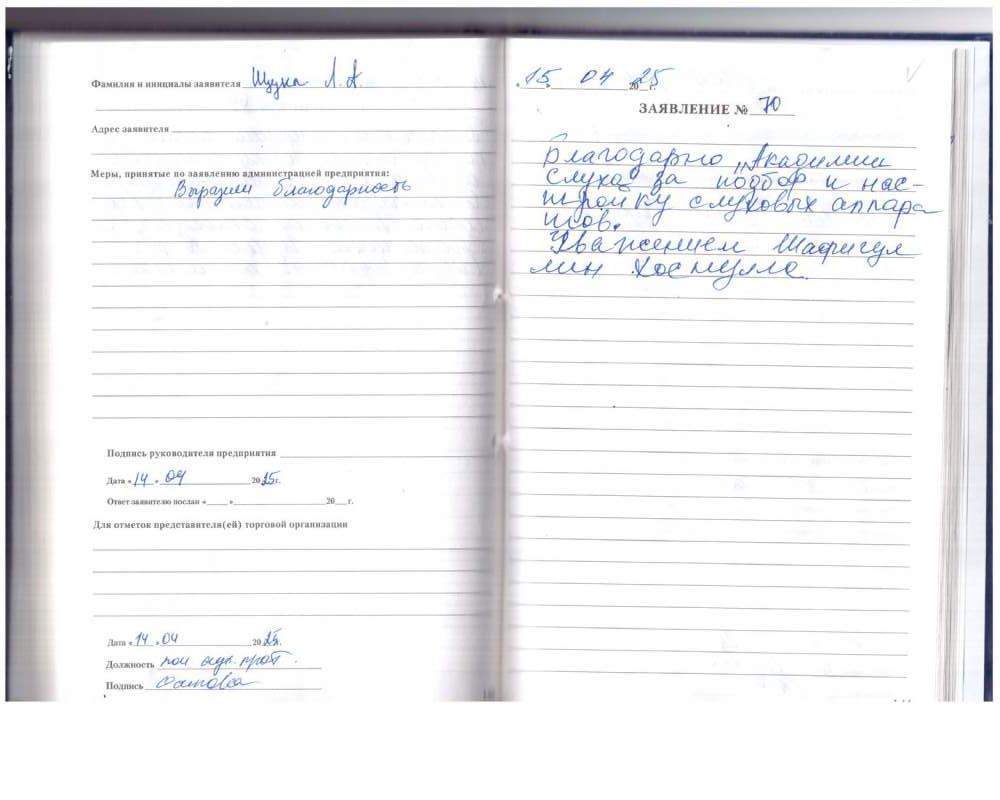 Фамилия и инициалы заявителя Щука Л. А.
Адрес заявителя
Меры, принятые по заявлению администрацией предприятия:
Выразили благодарность
Подпись руководителя предприятия
Дата «14» 04 2025г.
Ответ заявителю послан « » 20 г.
Для отметок представителя(ей) торговой организации
Дата «14» 04 2025г.
Должность
Подпись
«15» 04 2025г.
ЗАЯВЛЕНИЕ № 70
Благодарно „Академии
Слуха" за подбор и нас-
тройку слуховых аппара
тов.
Уважением Шафигул
лин